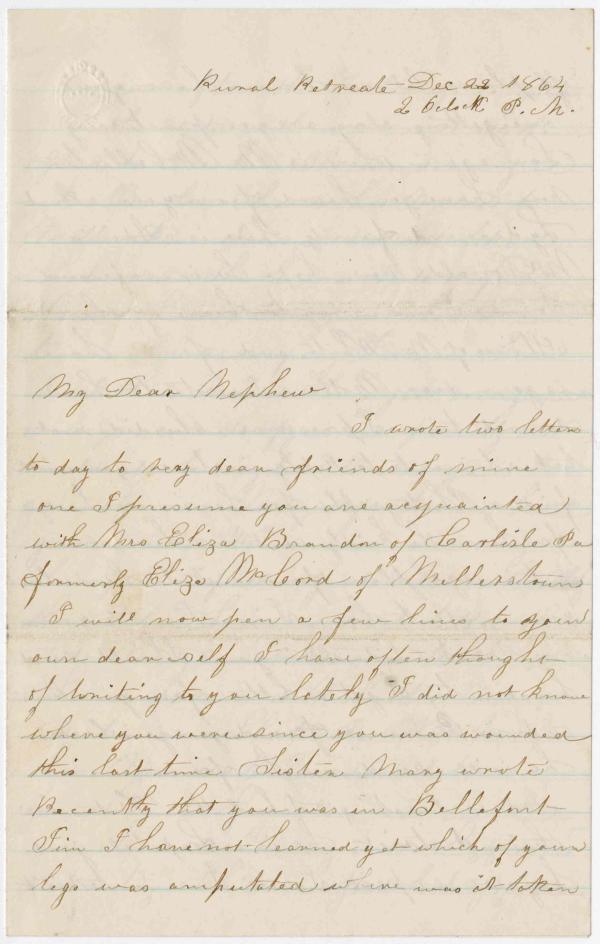 Rural Retreate Dec 22 1864
2 Oclock P.M.
My Dear Nephew
I wrote two letters
to day to very dear friends of mine
one I presume you are acquainted
with Mrs Eliza Brandon of Carlisle Pa
formerly Eliza McCord of Millerstown
I will now pen a few lines to your
own dear self I have often thought
of writing to you lately I did not know
where you were since you was wounded
this last time Sister Mary wrote
Recently that you was in Bellefont
Jim I have not learned yet which of your
legs was amputated where was it taken